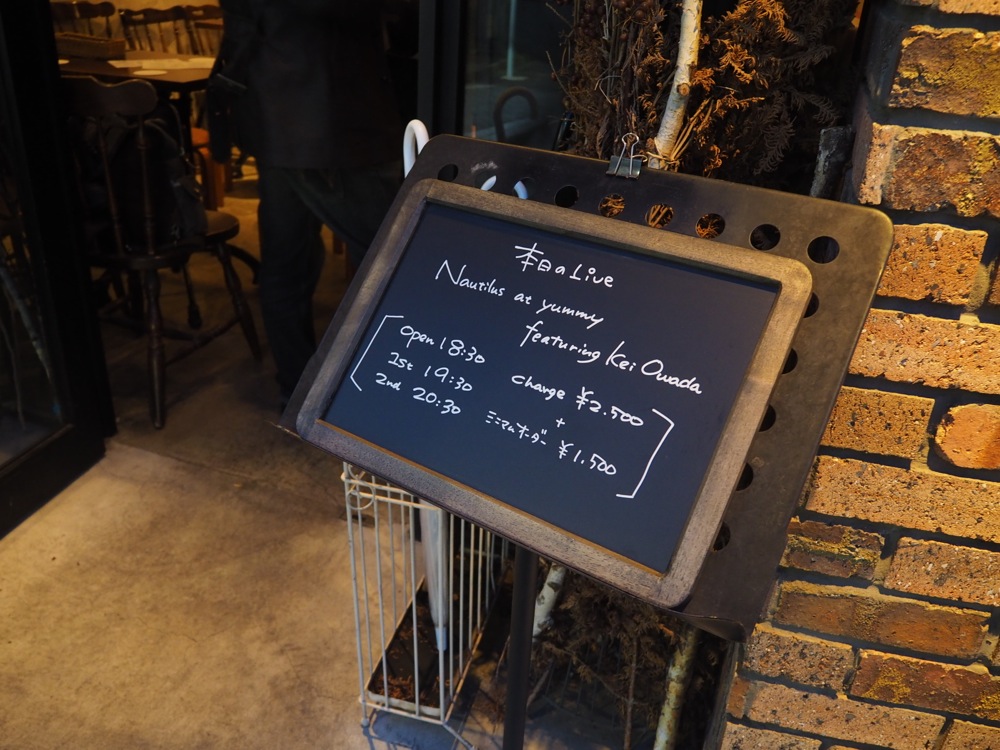 本日のLive
Nautilus at yummy
featuring Kei Owada
open 18:30
1st 19:30
2nd 20:30
change ¥2.500
+
ミニマムオーダー ¥1.500